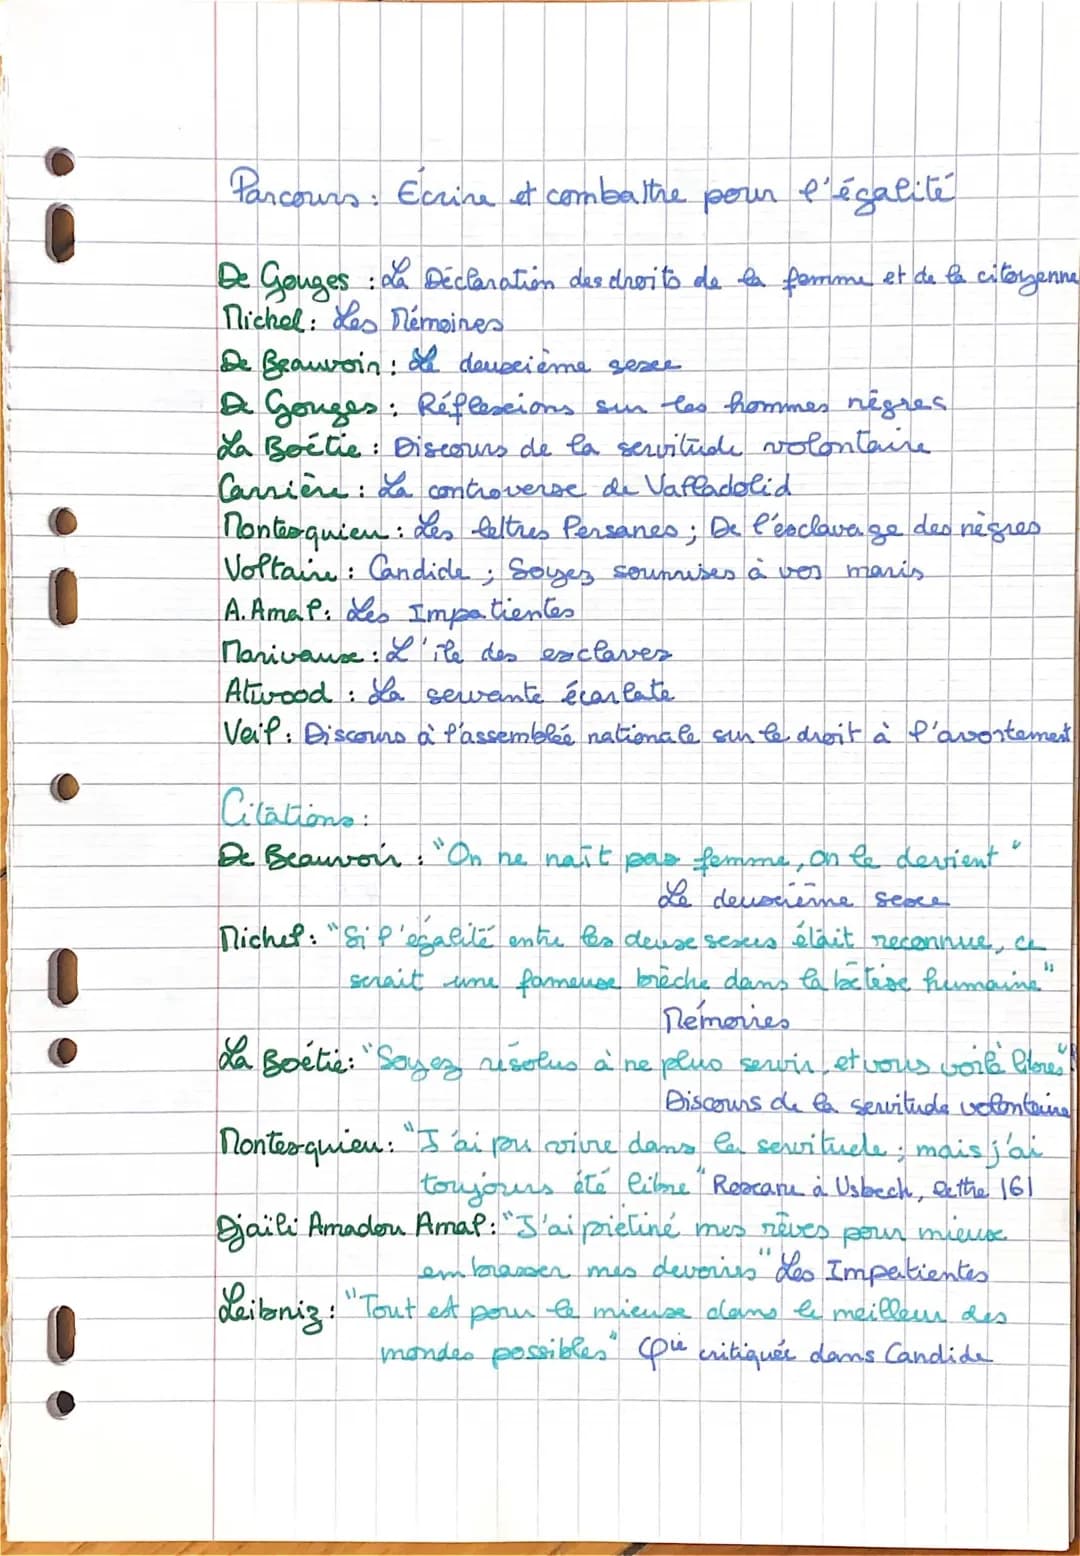 Parcours : Écrire et combattre pour l'égalité
De Gouges : La Déclaration des droits de la femme et de la citoyenne
Michel : Les Mémoires
De Beauvoir : Le deuxième sexe
De Gouges : Réflexions sur les hommes nègres
La Boétie : Discours de la servitude volontaire
Carrière : La controverse de Valladolid
Montesquieu : Les lettres Persanes ; De l'esclavage des nègres
Voltaire : Candide ; Soyez soumises à vos maris
A. Amal : Les Impatientes
Marivaux : L'île des esclaves
Atwood : La servante écarlate
Veil : Discours à l'assemblée nationale sur le droit à l'avortement
Citations :
De Beauvoir : "On ne naît pas femme, on le devient"
Le deuxième sexe
Michel : "Si l'égalité entre les deux sexes était reconnue, ce
serait une fameuse brèche dans la bêtise humaine"
Mémoires
La Boétie : "Soyez résolus à ne plus servir, et vous voilà libres"
Discours de la servitude volontaire
Montesquieu : "J'ai pu vivre dans la servitude ; mais j'ai
toujours été libre" Roxane à Usbech, lettre 161
Djaïli Amadou Amal : "J'ai piétiné mes rêves pour mieux
embrasser mes devoirs" Les Impatientes
Leibniz : "Tout est pour le mieux dans le meilleur des
mondes possibles" φie critiquée dans Candide